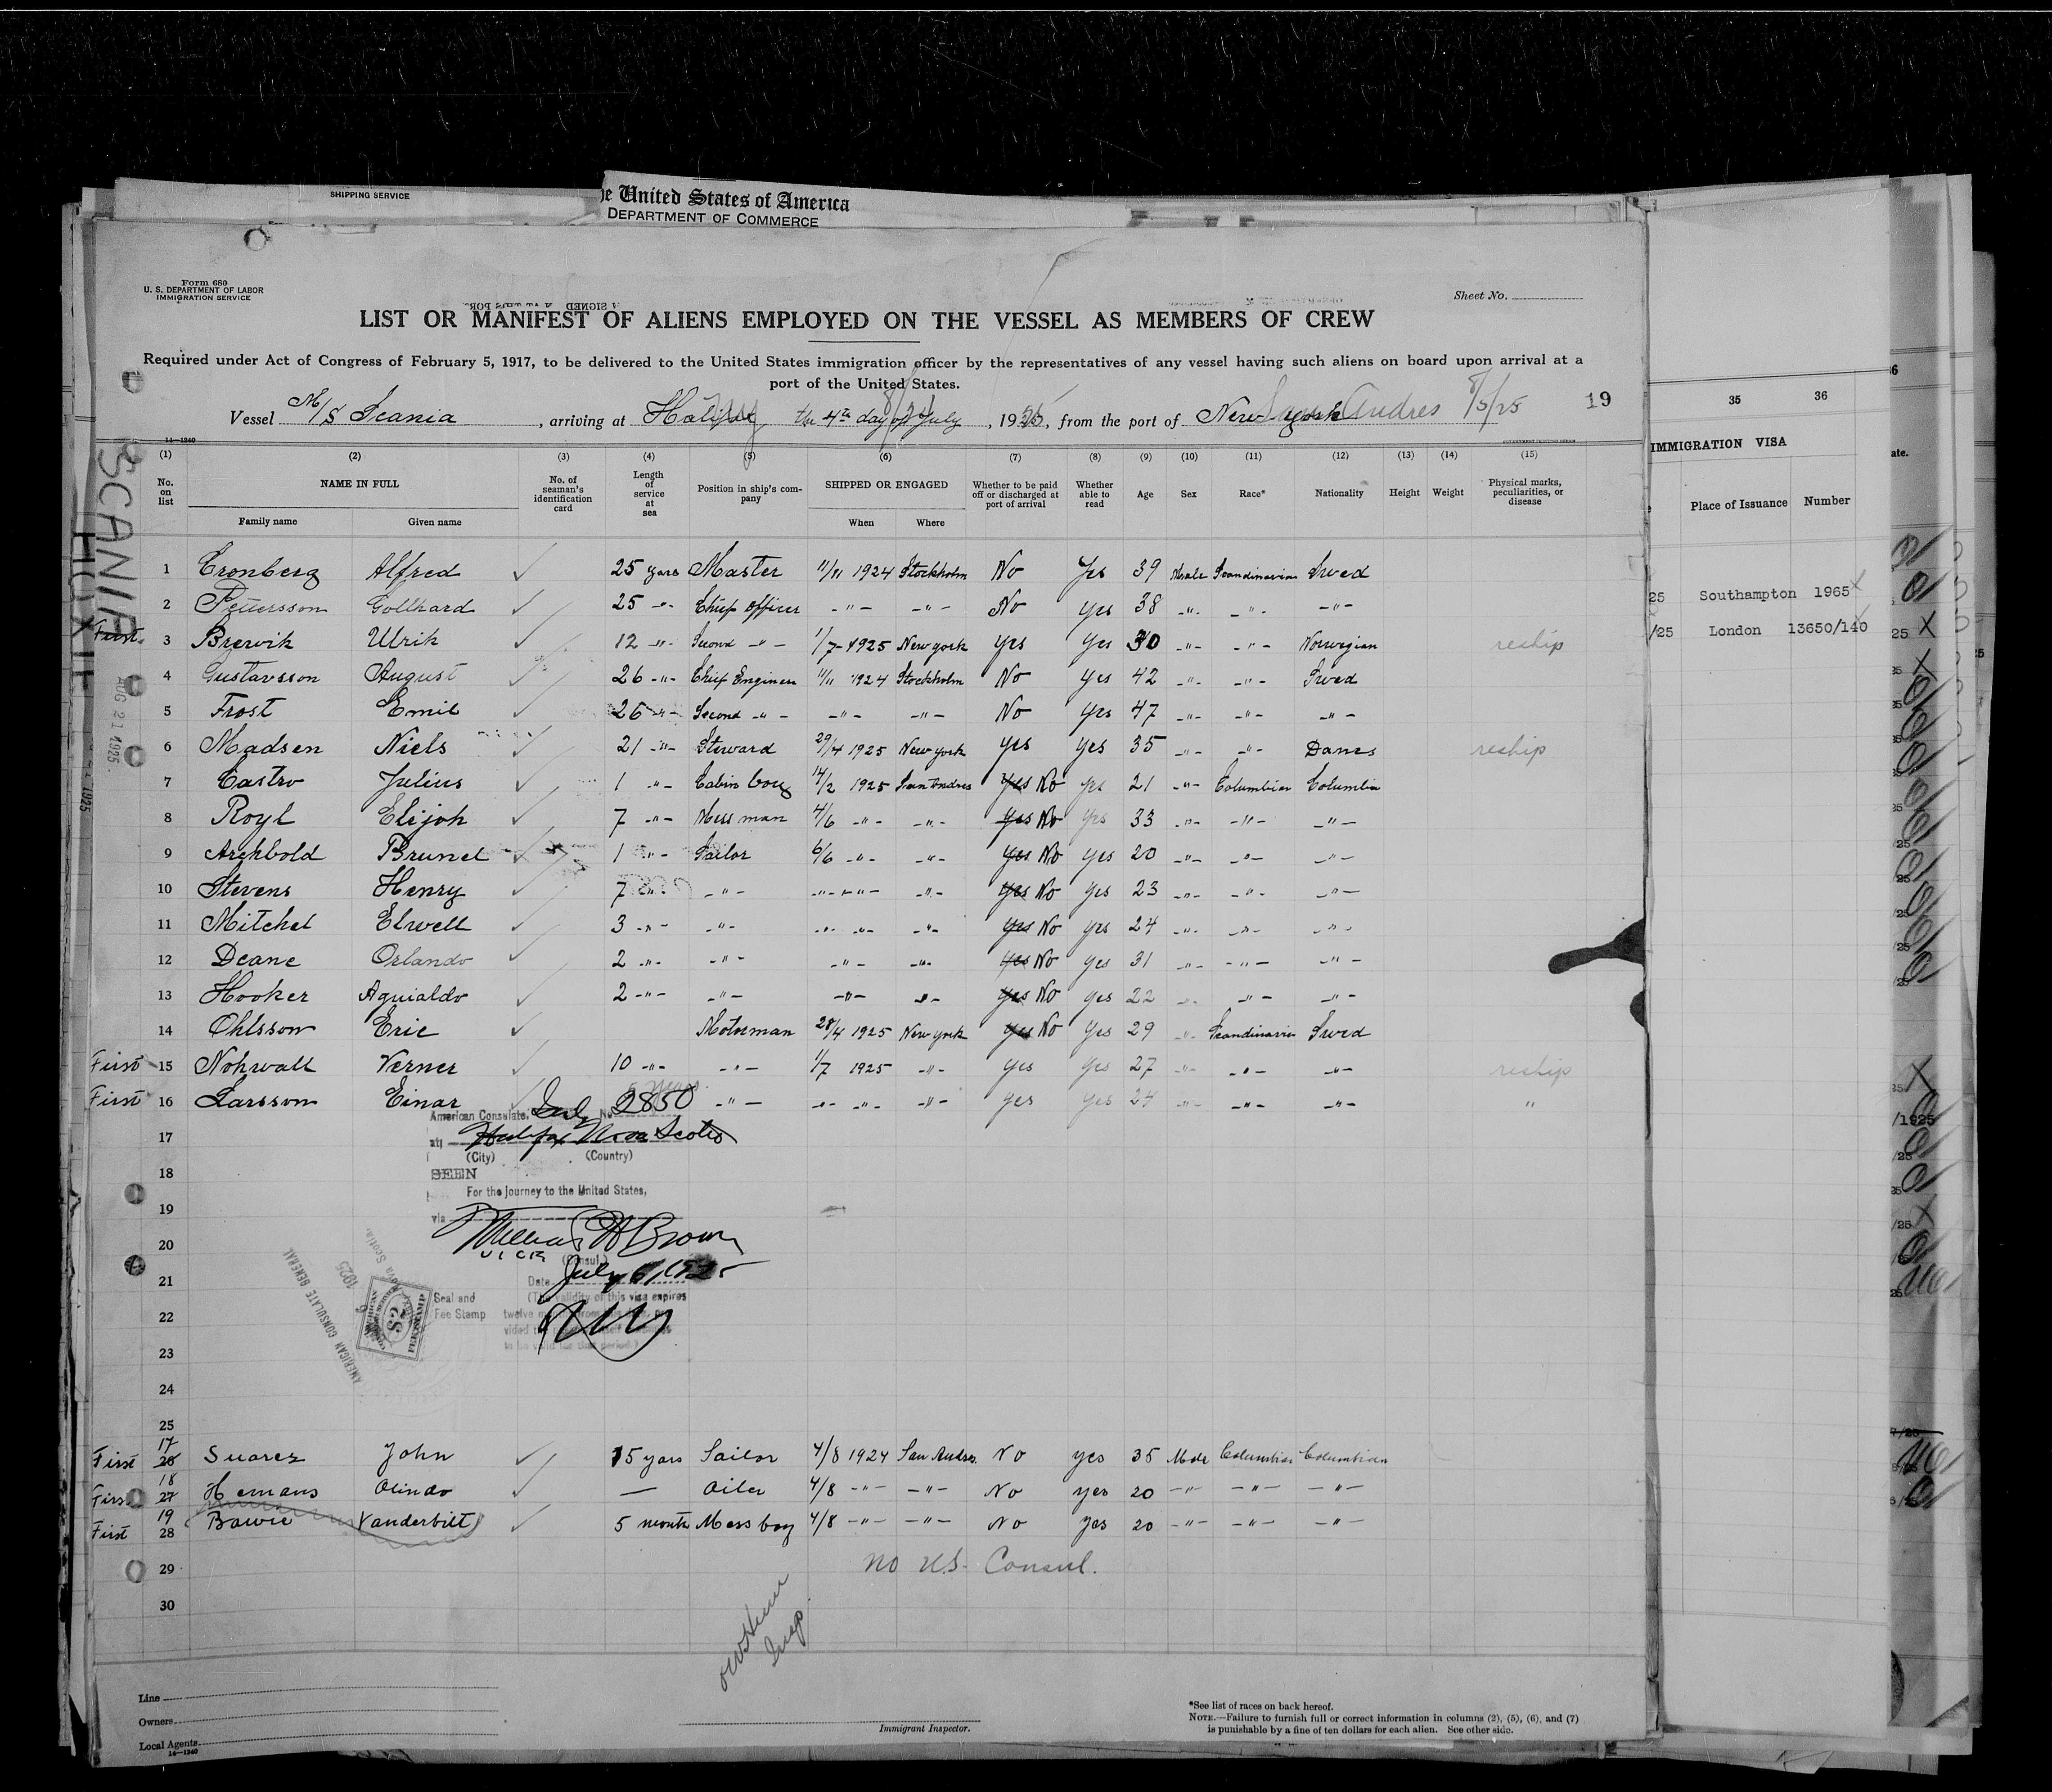 SHIPPING SERVICE
he United States of America
DEPARTMENT OF COMMERCE
Form 680
U. S. DEPARTMENT OF LABOR
IMMIGRATION SERVICE
Sheet No.
LIST OR MANIFEST OF ALIENS EMPLOYED ON THE VESSEL AS MEMBERS OF CREW
Required under Act of Congress of February 5, 1917, to be delivered to the United States immigration officer by the representatives of any vessel having such aliens on board upon arrival at a
port of the United States.
Vessel M/S Scania, arriving at Halifax the 4th day of July, 1925, from the port of New York San Andres 8/5/25 19
14—1240
(1) (2) (3) (4) (5) (6) (7) (8) (9) (10) (11) (12) (13) (14) (15)
No. on list NAME IN FULL No. of seaman's identification card Length of service at sea Position in ship's company SHIPPED OR ENGAGED Whether to be paid off or discharged at port of arrival Whether able to read Age Sex Race* Nationality Height Weight Physical marks, peculiarities, or disease
Family name Given name When Where
SCANIA
AUG 21 1925
1 Cronberg Alfred ✓ 25 years Master 11/11 1924 Stockholm No Yes 39 Male Scandinavian Swed
2 Pettersson Gotthard ✓ 25 -"- Chief officer -"- -"- No yes 38 -"- -"- -"-
First 3 Brevik Ulrik ✓ 12 -"- Second -"- 1/7- 1925 New york yes yes 30 -"- -"- Norwegian reship
4 Gustavsson August ✓ 26 -"- Chief Engineer 11/11 1924 Stockholm No yes 42 -"- -"- Swed
5 Frost Emil ✓ 26 -"- Second -"- -"- -"- No yes 47 -"- -"- -"-
6 Madsen Niels ✓ 21 -"- Steward 29/4 1925 New york yes yes 35 -"- -"- Danes reship
7 Castro Julius ✓ 1 -"- Cabin boy 14/2 1925 San Andres yes No yes 21 -"- Columbian Columbia
8 Royl Elijoh ✓ 7 -"- Mess man 4/6 -"- -"- yes No yes 33 -"- -"- -"-
9 Archbold Brunel ✓ 1 -"- Sailor 6/6 -"- -"- yes No yes 20 -"- -"- -"-
10 Stevens Henry ✓ 7 -"- -"- -"- -"- -"- yes No yes 23 -"- -"- -"-
11 Mitchel Elwell ✓ 3 -"- -"- -"- -"- -"- yes No yes 24 -"- -"- -"-
12 Deane Orlando ✓ 2 -"- -"- -"- -"- yes No yes 31 -"- -"- -"-
13 Hooker Aguialdo ✓ 2 -"- -"- -"- -"- yes No yes 22 -"- -"- -"-
14 Ohlsson Eric ✓ Motorman 28/4 1925 New york yes No yes 29 -"- Scandinavia Swed
First 15 Nohrvall Verner ✓ 10 -"- -"- 1/7 1925 -"- yes yes 27 -"- -"- -"- reship
First 16 Larsson Einar ✓ 5 years -"- -"- -"- -"- yes yes 24 -"- -"- -"- "
American Consulate, No. 2850
17 at Halifax Nova Scotia
(City) (Country)
18 SEEN
For the journey to the United States,
19 via
20 William H Brown
VICE (Consul)
21 Date July 6, 1925
Seal and Fee Stamp
(The validity of this visa expires
22
23
24
AMERICAN CONSULATE GENERAL
1925
25
First 17 26 Suarez John ✓ 15 years Sailor 4/8 1924 San Andres. No yes 35 Male Columbian Columbian
First 18 27 Hemans Olindo ✓ — Oiler 4/8 -"- -"- No yes 20 -"- -"- -"-
First 19 28 Bowie Vanderbilt ✓ 5 month Mess boy 4/8 -"- -"- No yes 20 -"- -"- -"-
29 No U.S. Consul.
30
Insp.
Line
Owners
Local Agents
14—1240
Immigrant Inspector.
*See list of races on back hereof.
NOTE.—Failure to furnish full or correct information in columns (2), (5), (6), and (7)
is punishable by a fine of ten dollars for each alien. See other side.
35 36
IMMIGRATION VISA
Place of Issuance Number
25 Southampton 1965
/25 London 13650/140